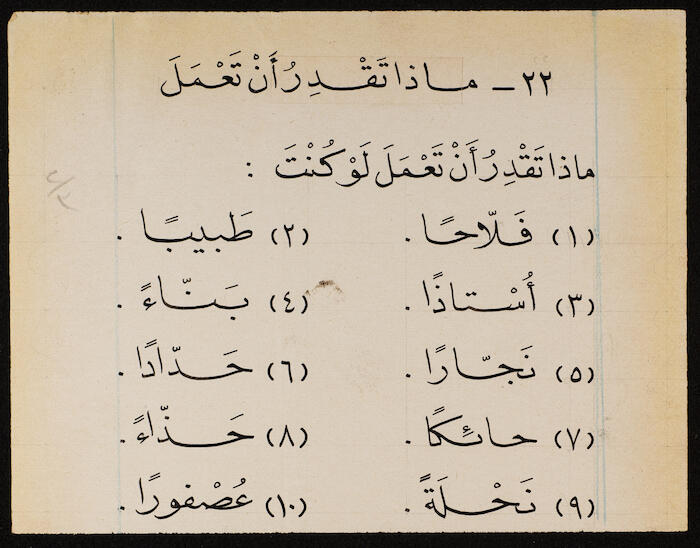 ٢٢ - ماذا تَقْدِرُ أَنْ تَعْمَلَ
ماذا تَقْدِرُ أَنْ تَعْمَلَ لَوْ كُنْتَ :
(١) فَلّاحًا . (٢) طَبيبًا .
(٣) أُسْتاذًا . (٤) بَنّاءً .
(٥) نَجّارًا . (٦) حَدّادًا .
(٧) حائِكًا . (٨) حَذّاءً .
(٩) نَحْلَةً . (١٠) عُصْفورًا .